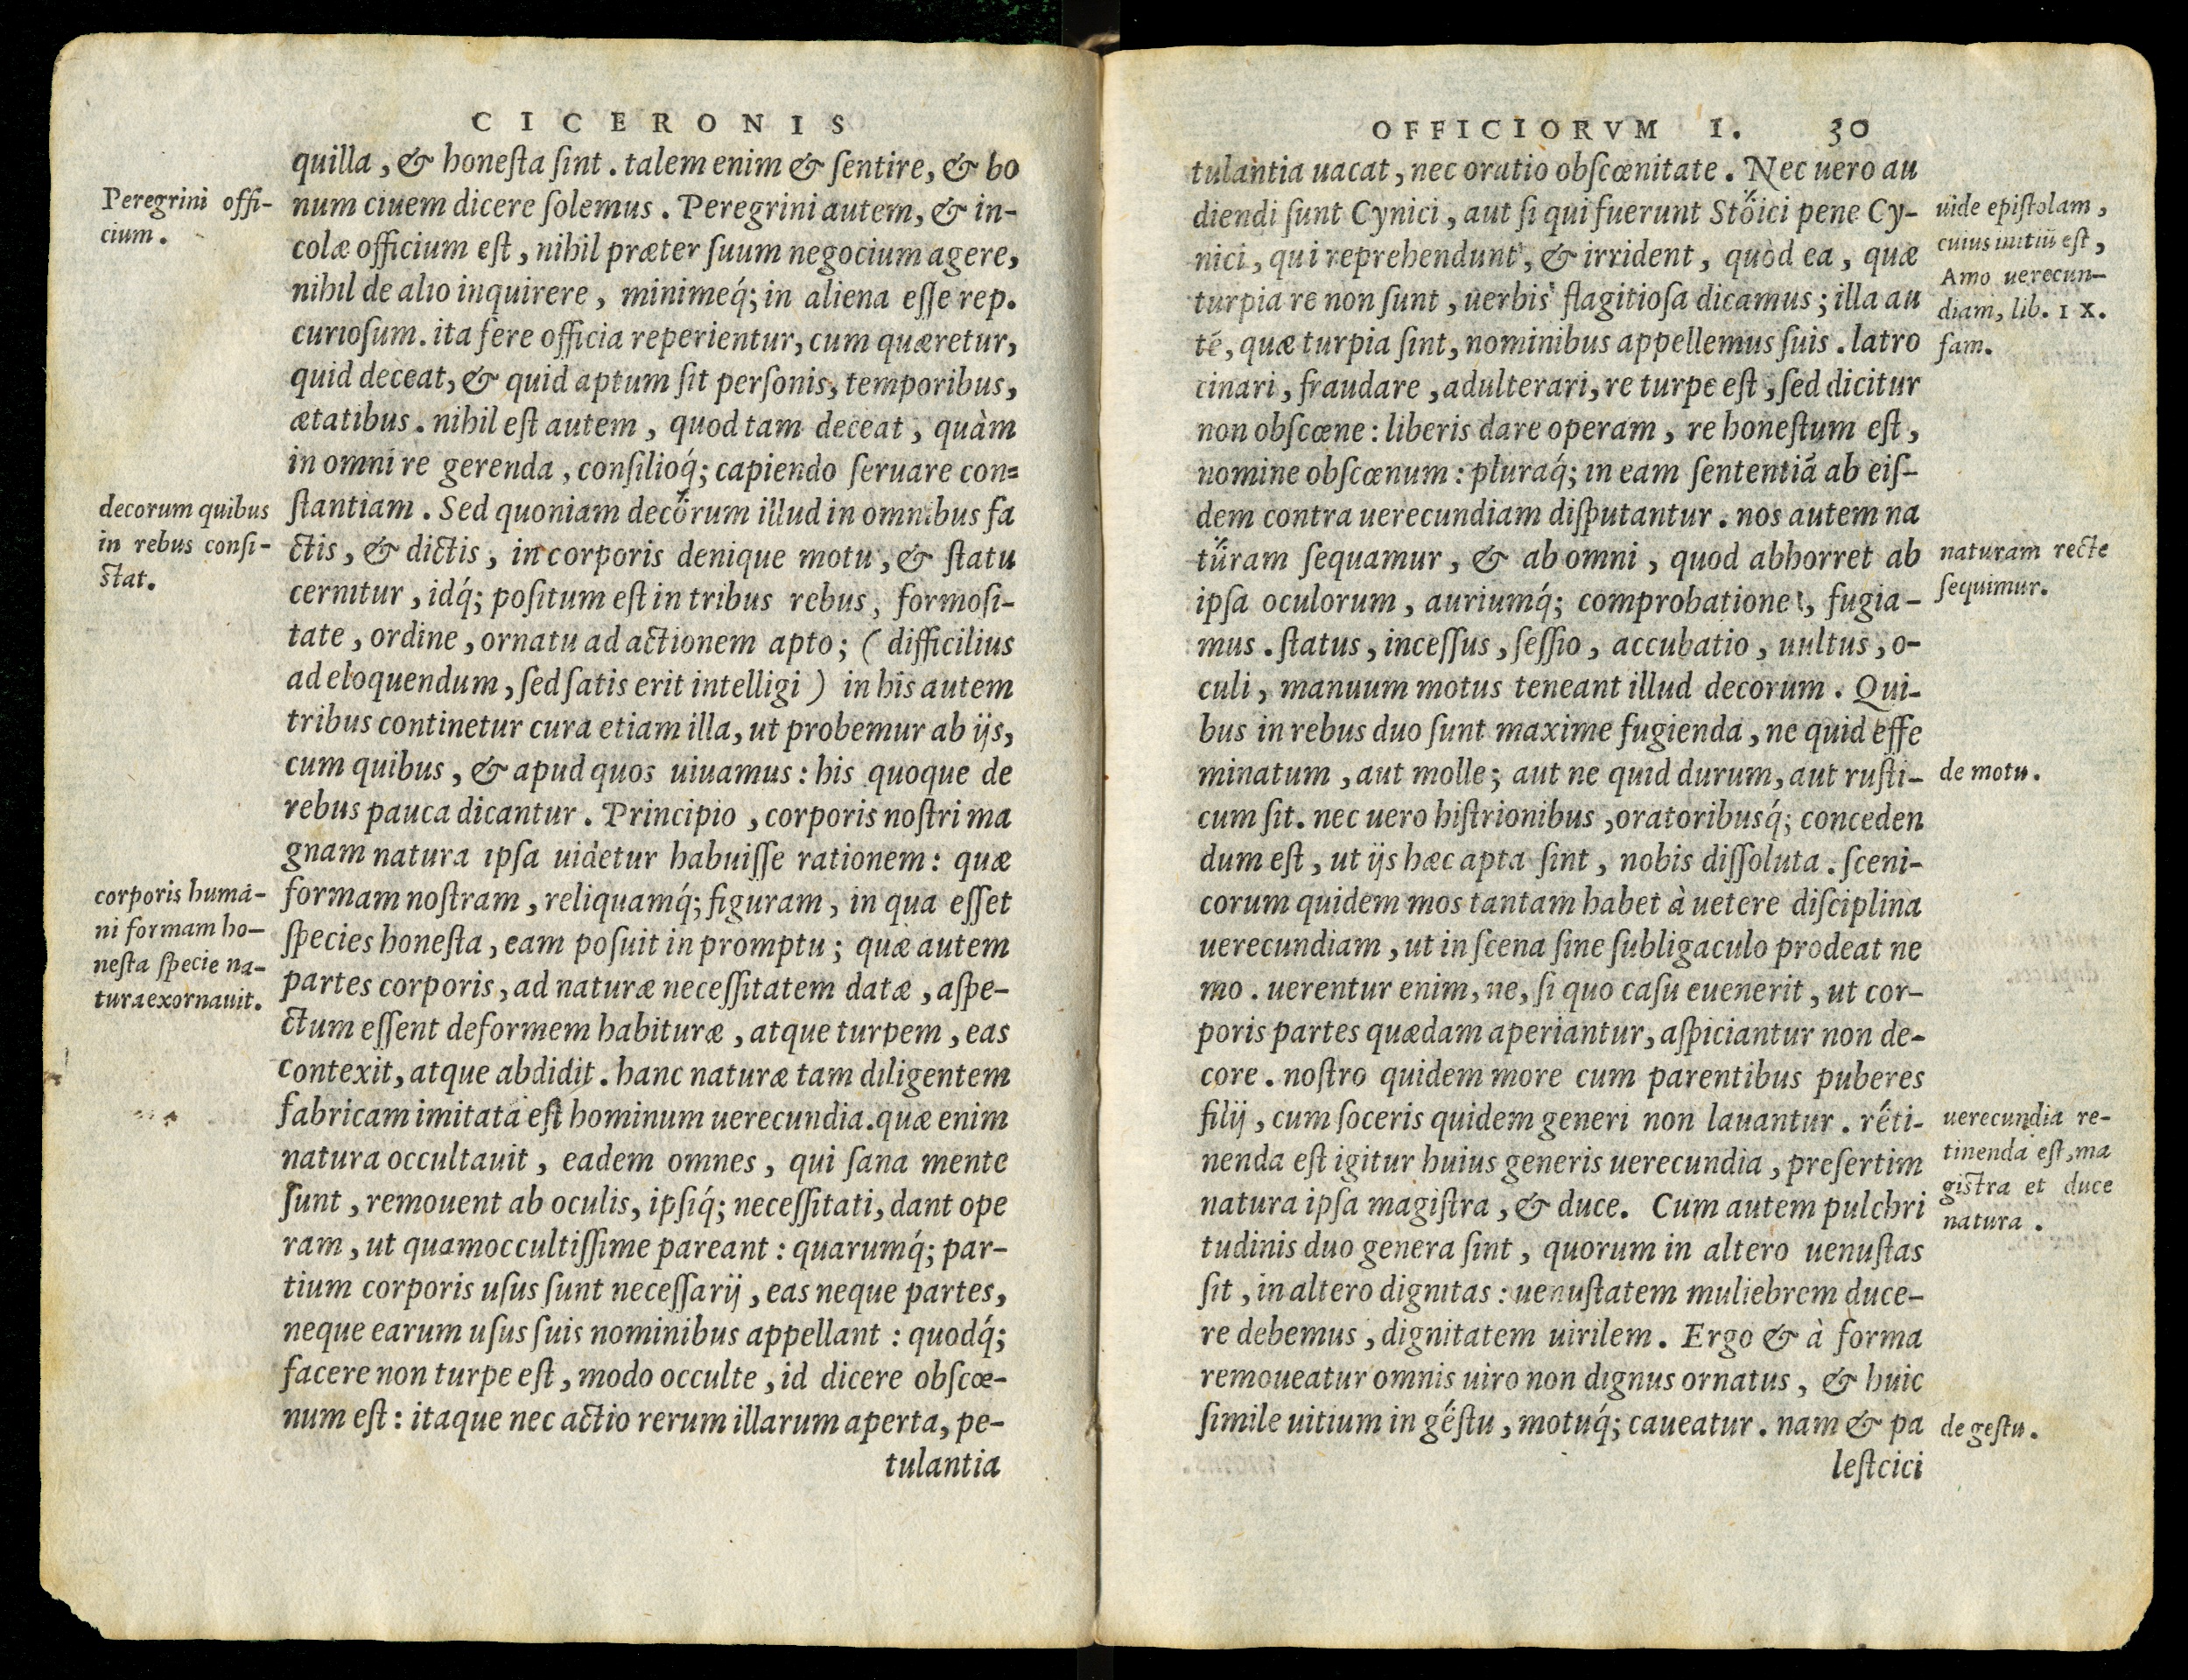 CICERONIS
quilla, & honeſta ſint. talem enim & ſentire, & bo
num ciuem dicere ſolemus. Peregrini autem, & in-
colæ officium eſt, nihil præter ſuum negocium agere,
nihil de alio inquirere, minimeq́; in aliena eſſe rep.
curioſum. ita fere officia reperientur, cum quæretur,
quid deceat, & quid aptum ſit perſonis, temporibus,
ætatibus. nihil eſt autem, quod tam deceat, quàm
in omni re gerenda, conſilioq́; capiendo ſeruare con-
ſtantiam. Sed quoniam decorum illud in omnibus fa
ctis, & dictis, in corporis denique motu, & ſtatu
cernitur, idq́; poſitum eſt in tribus rebus, formoſi-
tate, ordine, ornatu ad actionem apto; (difficilius
ad eloquendum, ſed ſatis erit intelligi) in his autem
tribus continetur cura etiam illa, ut probemur ab ijs,
cum quibus, & apud quos uiuamus: his quoque de
rebus pauca dicantur. Principio, corporis noſtri ma
gnam natura ipſa uidetur habuiſſe rationem: quæ
formam noſtram, reliquamq́; figuram, in qua eſſet
ſpecies honeſta, eam poſuit in promptu; quæ autem
partes corporis, ad naturæ neceſſitatem datæ, aſpe-
ctum eſſent deformem habituræ, atque turpem, eas
contexit, atque abdidit. hanc naturæ tam diligentem
fabricam imitata eſt hominum uerecundia. quæ enim
natura occultauit, eadem omnes, qui ſana mente
ſunt, remouent ab oculis, ipſiq́; neceſſitati, dant ope
ram, ut quamoccultiſſime pareant: quarumq́; par-
tium corporis uſus ſunt neceſſarij, eas neque partes,
neque earum uſus ſuis nominibus appellant: quodq́;
facere non turpe eſt, modo occulte, id dicere obſcœ-
num eſt: itaque nec actio rerum illarum aperta, pe-
tulantia
Peregrini offi-
cium.
decorum quibus
in rebus conſi-
ſtat.
corporis huma-
ni formam ho-
neſta ſpecie na-
tura exornauit.
OFFICIORVM I. 30
tulantia uacat, nec oratio obſcœnitate. Nec uero au
diendi ſunt Cynici, aut ſi qui fuerunt Stoici pene Cy-
nici, qui reprehendunt, & irrident, quòd ea, quæ
turpia re non ſunt, uerbis flagitioſa dicamus; illa au
té, quæ turpia ſint, nominibus appellemus ſuis. latro
cinari, fraudare, adulterari, re turpe eſt, ſed dicitur
non obſcœne: liberis dare operam, re honeſtum eſt,
nomine obſcœnum: pluraq́; in eam ſententiã ab eiſ-
dem contra uerecundiam diſputantur. nos autem na
turam ſequamur, & ab omni, quod abhorret ab
ipſa oculorum, auriumq́; comprobatione, fugia-
mus. ſtatus, inceſſus, ſeſſio, accubatio, uultus, o-
culi, manuum motus teneant illud decorum. Qui-
bus in rebus duo ſunt maxime fugienda, ne quid effe
minatum, aut molle; aut ne quid durum, aut ruſti-
cum ſit. nec uero hiſtrionibus, oratoribusq́; conceden
dum eſt, ut ijs hæc apta ſint, nobis diſſoluta. ſceni-
corum quidem mos tantam habet à uetere diſciplina
uerecundiam, ut in ſcena ſine ſubligaculo prodeat ne
mo. uerentur enim, ne, ſi quo caſu euenerit, ut cor-
poris partes quædam aperiantur, aſpiciantur non de-
core. noſtro quidem more cum parentibus puberes
filij, cum ſoceris quidem generi non lauantur. reti-
nenda eſt igitur huius generis uerecundia, preſertim
natura ipſa magiſtra, & duce. Cum autem pulchri
tudinis duo genera ſint, quorum in altero uenuſtas
ſit, in altero dignitas: uenuſtatem muliebrem duce-
re debemus, dignitatem uirilem. Ergo & à forma
remoueatur omnis uiro non dignus ornatus, & huic
ſimile uitium in geſtu, motuq́; caueatur. nam & pa
leſtcici
uide epiſtolam,
cuius initiũ eſt,
Amo uerecun-
diam, lib. IX.
fam.
naturam recte
ſequimur.
de motu.
uerecundia re-
tinenda eſt, ma
giſtra et duce
natura.
de geſtu.